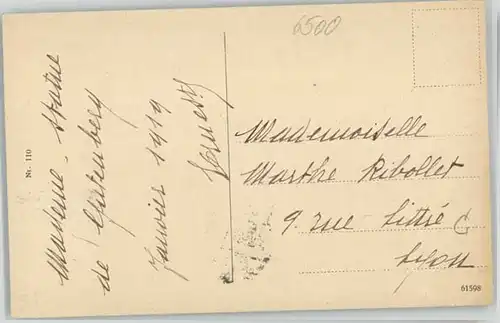 6500
Nr. 110
Mayence - Statue
de Gutenberg
Janvier 1919
Ernest
Mademoiselle
Marthe Ribollet
9. rue Littré
Lyon
61598